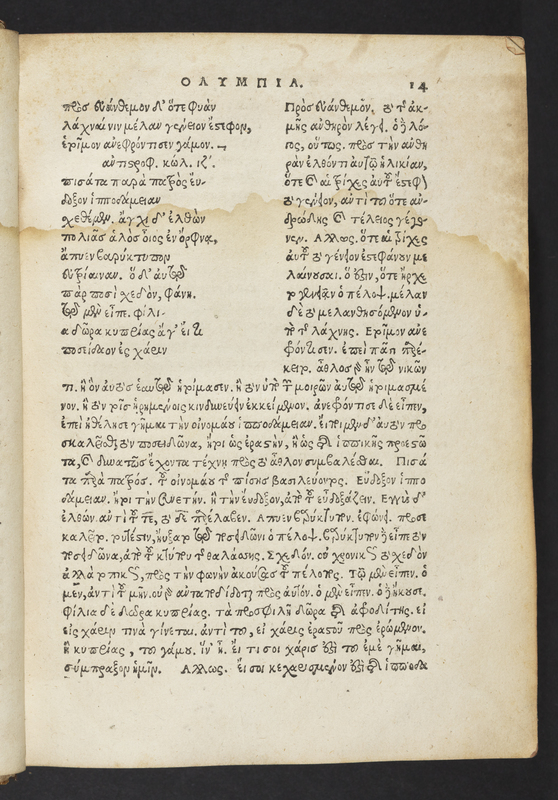 ΟΛΥΜΠΙΑ. 14
πρὸς εὐάνθεμον δ' ὅτε φυὰν
λάχναι νιν μέλαν γένειον ἔρεφον,
ἑτοῖμον ἀνεφρόντισεν γάμον.
ἀντιστροφ. κώλ. ιζ'.
πισάτα παρὰ πατρὸς εὔ-
δοξον ἱπποδάμειαν
σχεθέμεν. ἄγχι δ' ἐλθὼν
πολιᾶς ἁλὸς οἶος ἐν ὄρφνᾳ,
ἄπυεν βαρύκτυπον
εὐτρίαιναν. ὁ δ' αὐτῷ
πὰρ ποσὶ σχεδὸν, φάνη.
τῷ μὲν εἶπε. φίλι-
α δῶρα κυπρίας ἄγ' εἴ τι
ποσείδαον ἐς χάριν
Πρὸς εὐάνθεμον. τὸν τῆς ἀκ-
μῆς ἀνθηρὸν λέγει. ὁ δὲ λό-
γος, οὕτως. πρὸς τὴν ἀνθη
ρὰν ἐλθόντι αὐτῷ ἡλικίαν,
ὅτε καὶ αἱ τρίχες αὐτοῦ
τὸ γένειον, ἀντὶ τοῦ ὅτε ἀν-
δρώδης καὶ τέλειος γέγο-
νεν. Ἄλλως. ὅτε αἱ τρίχες
αὐτοῦ τὸ γένειον ἐστεφάνουν με
λαίνουσαι. ὅ ἐστιν, ὅτε ἤρχε
το γενειᾶν ὁ πέλοψ. μέλαν
δὲ τὸ μελανθησόμενον ὑ-
πὸ τῆς λάχνης. Ἑτοῖμον ἀνε
φρόντισεν. ἐπεὶ πᾶσι προέ-
κειτο. ἆθλος γὰρ ἦν τῷ νικῶν
τι. ἢ ὃν αὐτὸς ἑαυτῷ ἡτοίμασεν. ἢ τὸν ὑπὸ τῶν μοιρῶν αὐτῷ ἡτοιμασμέ
νον. ἢ τὸν τοῖς ἡρημένοις κινδυνεύειν ἐκκείμενον. ἀνεφρόντισε δὲ εἶπεν,
ἐπεὶ ἠθέλησε γῆμαι τὴν οἰνομάου ἱπποδάμειαν.
σκαλεῖσθαι τὸν ποσειδῶνα, ἤτοι ὡς ἐραστὴν, ἢ ὡς διὰ ἱππικῆς προεστῶ
τα, καὶ δυνατῶς ἔχοντα τέχνῃ πρὸς τὸ ἆθλον συμβαλέσθαι. Πισά
τα παρὰ πατρός. τοῦ οἰνομάου τοῦ πίσης βασιλεύοντος. Εὔδοξον ἱππο
δάμειαν. ἤτοι τὴν εὐγενετήν. ἢ τὴν ἔνδοξον, ἀπὸ τοῦ εὐδοξάζειν. Ἐγγὺς δ'
ἐλθὼν. ἀντὶ τοῦ τε, τὸ δὲ προέλαβεν. Ἄπυεν βαρύκτυπον. ἐφώνει. προσε
τῷ ποσειδῶνι ὁ πέλοψ. βαρύκτυπον δὲ εἶπε τὸν
ποσειδῶνα, ἀπὸ τοῦ κτύπου τῆς θαλάσσης. Σχεδόν. οὐ χρονικῶς τὸ σχεδὸν
ἀλλὰ τοπικῶς, πρὸς τὴν φωνὴν ἀκούσας τοῦ πέλοπος. Τῷ μὲν εἶπεν. ὁ
μὲν, ἀντὶ τοῦ μὴν.
Φίλια δὲ δῶρα κυπρίας. τὰ προσφιλῆ δῶρα διὰ ἀφροδίτης. εἰ
εἰς χάριν τινὰ γίνεται. ἀντὶ τοῦ, εἰ χάρις ἐραστοῦ πρὸς ἐρώμενον.
ἢ κυπρίας, τοῦ γάμου. ἵν' ᾖ. εἴ τί σοι χάρις ἐστὶ τοῦ ἐμὲ γῆμαι,
σύμπραξον ἡμῖν. Ἄλλως. εἴ σοι κεχαρισμένον ἐστὶ διὰ ἱπποδα